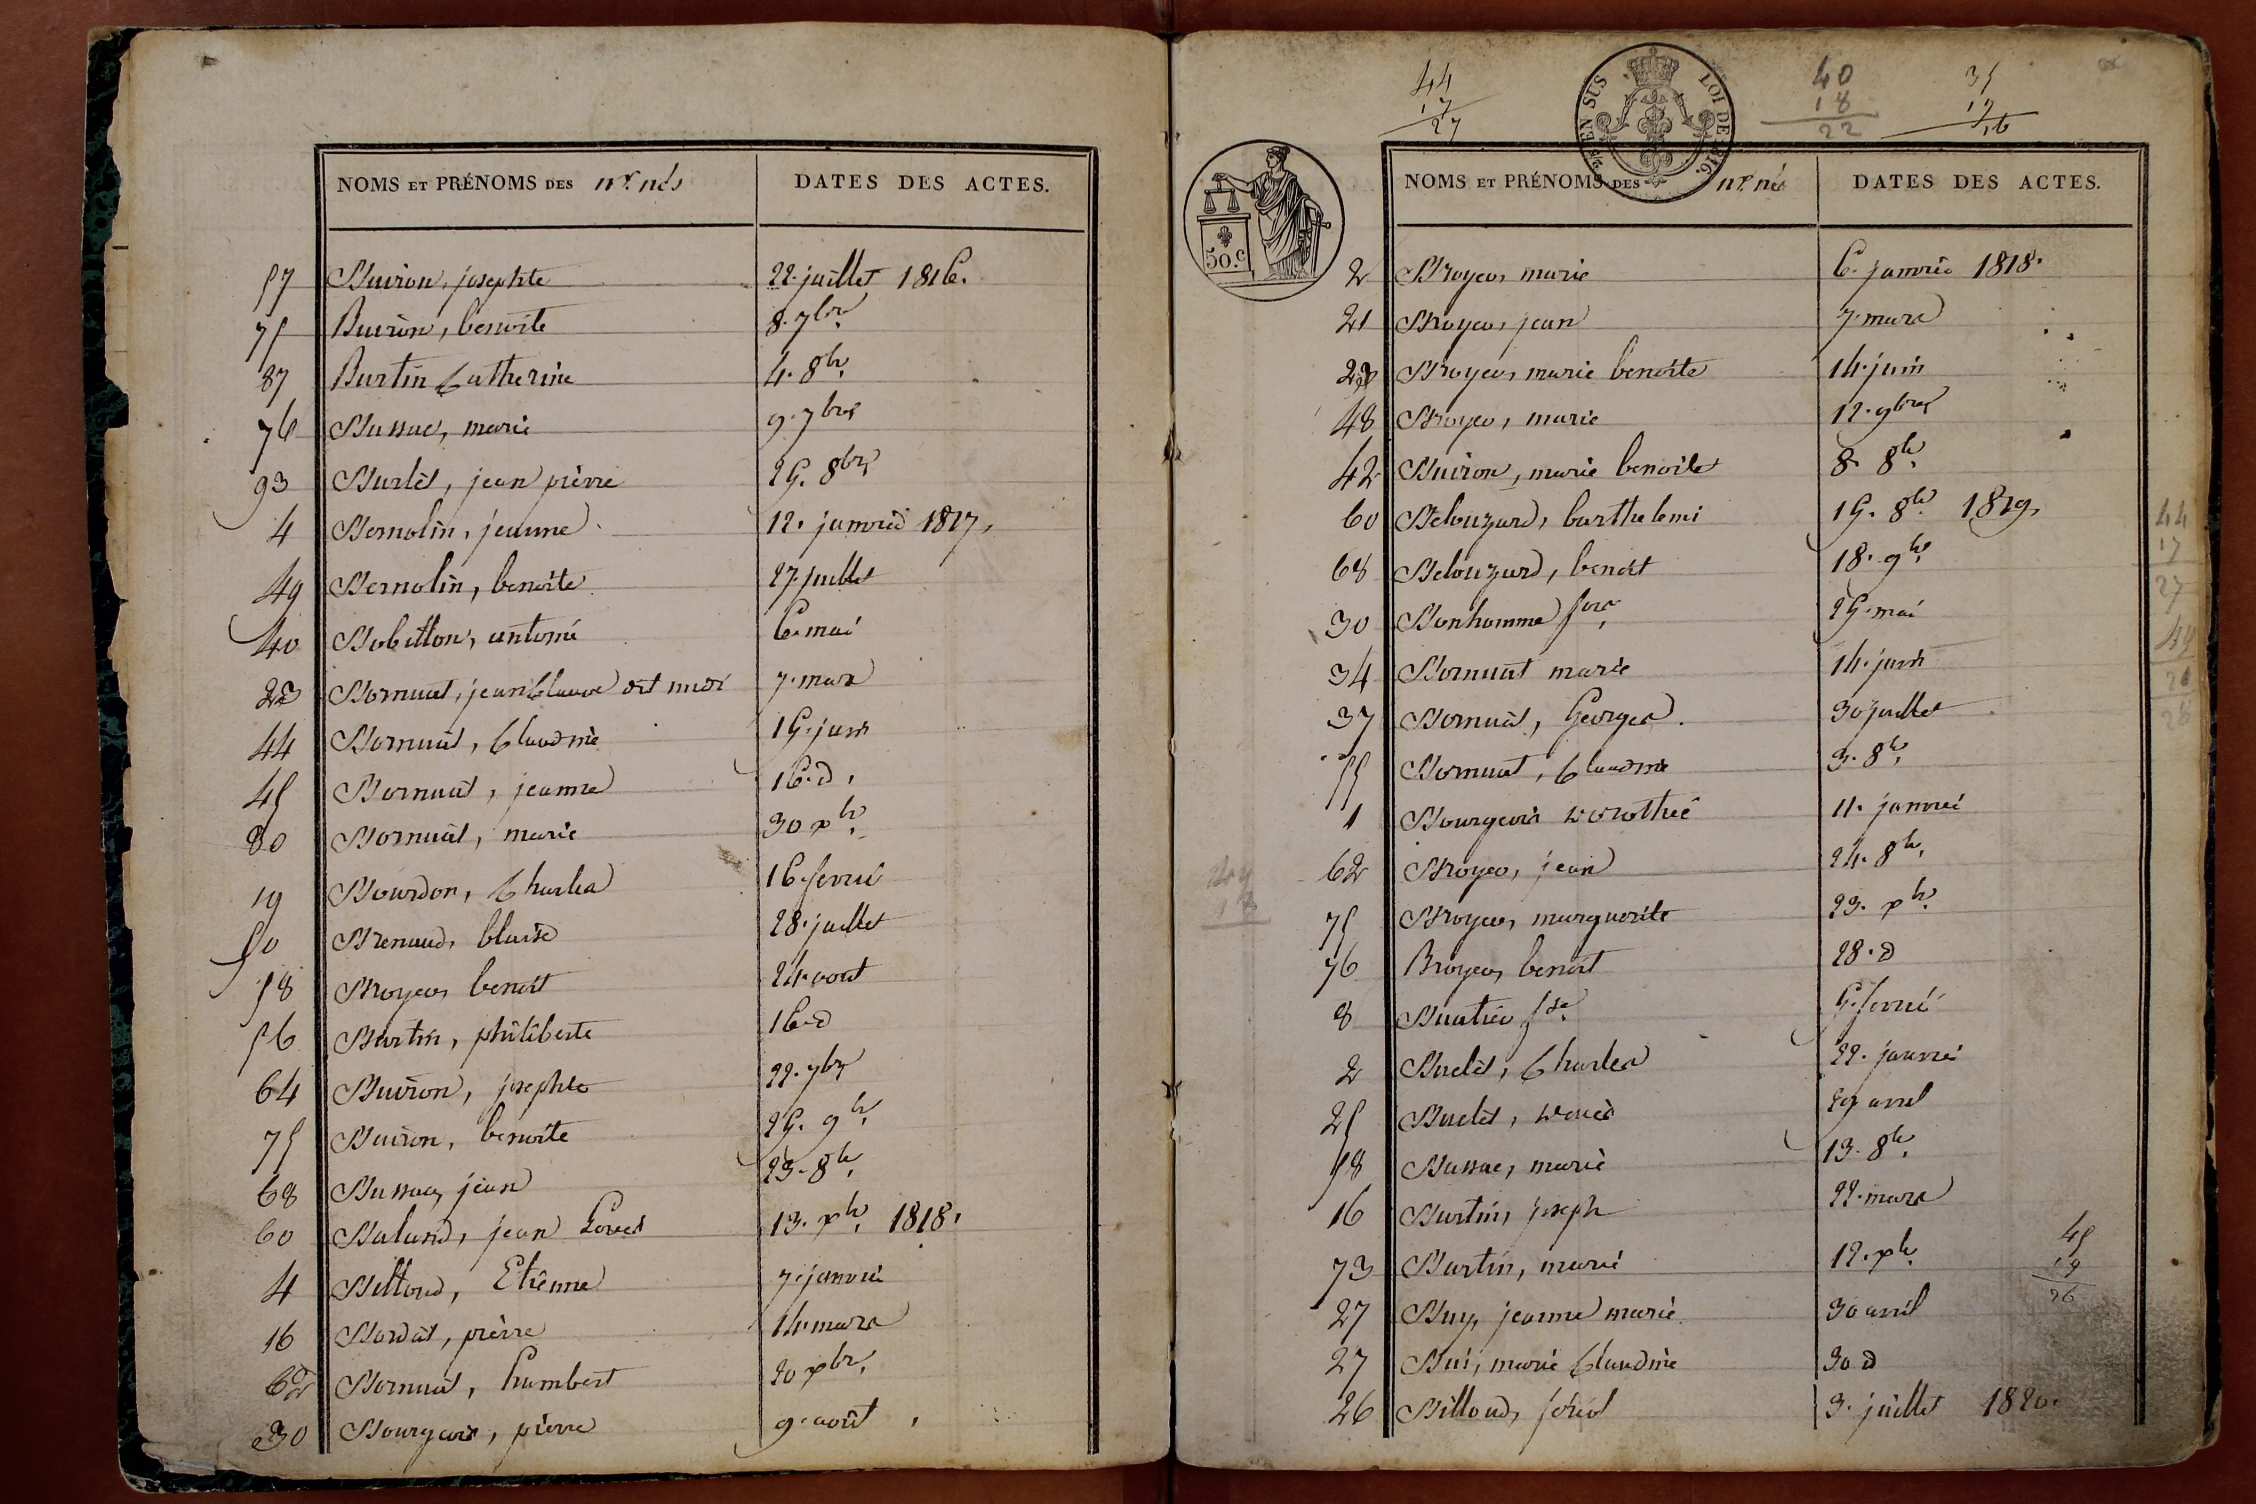 NOMS ET PRÉNOMS DES nx. nés DATES DES ACTES.
57 Buiron, josephte 22. juillet 1816.
75 Buiron, benoite 8. 7bre
87 Burtin Catherine 4. 8bre
76 Bussac, marie 9. 7bre
93 Burlet, jean pierre 25. 8bre
4 Bernolin, jeanne 12. janvier 1817.
49 Bernolin, benoite 27 juillet
40 Bobillon, antoine 6. mai
22 Bornuat, jean Claude dit midi 7. mars
44 Bornuat, Claudine 15. juin
45 Bornuat, jeanne 16. d.
80 Bornuat, marie 30 xbre
19 Bourdon, Charles 16. fevrié
50 Brenaud, blaise 28. juillet
58 Broyer, benoit 24. aout
56 Burtin, philiberte 16. d
64 Buiron, josephte 22. 7bre
75 Buiron, benoite 25. 9bre
68 Bussac, jean 23. 8bre
60 Baland, jean Louis 13. xbre 1818.
4 Billoud, Etienne 7. janvié
16 Bordat, pierre 14. mars
62 Bornuat, humbert 20 xbre
30 Bourgeois, pierre 9. août
44
17
27
EN SUS LOI DE 1816.
40
18
22
35
19
16
50.c
NOMS ET PRÉNOMS DES nx. nés DATES DES ACTES.
2 Broyer, marie 6. janvier 1818.
21 Broyer, jean 7. mars
Broyer, marie benoite 14. juin
48 Broyer, marie 12. 9bre
42 Buiron, marie benoite 8. 8bre
60 Belouzard, barthelemi 15. 8bre 1819.
68 Belouzard, benoit 18. 9bre
30 Bonhomme fois 25. mai
34 Bornuat marie 14. juin
37 Bornuat, Georges 30 juillet
55 Bornuat, Claudine 3. 8bre
1 Bourgeois dorothée 11. janvié
62 Broyer, jean 24. 8bre
75 Broyer, marguerite 23. xbre
76 Broyer, benoit 28. d
8 Buatier fse 5. fevrié
2 Buclet, Charles 22. janvié
25 Buclet, 29 avril
58 Bussac, marie 13. 8bre
16 Burtin, joseph 22. mars
73 Burtin, marie 12. xbre
27 Buy, jeanne marie 30 avril
27 Bui, marie Claudine 30 d
26 Billoud, feréol 3. juillet 1820.
44
17
27
45
19
26